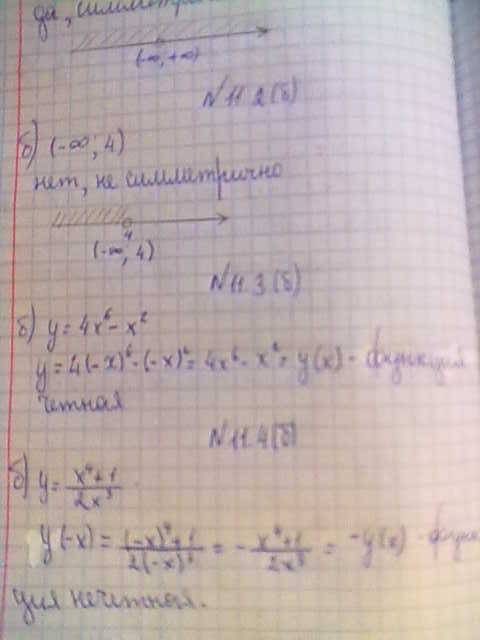 да, симметрично
(-∞, +∞)
N 11.2(б)
б) (-∞; 4)
нет, не симметрично
4
(-∞, 4)
N 11.3(б)
б) y = 4x⁶ - x²
y = 4(-x)⁶ - (-x)² = 4x⁶ - x² = y(x) - функция
четная
N 11.4(б)
б) y = (x⁴+1)/(2x³)
y(-x) = ((-x)⁴+1)/(2(-x)³) = - (x⁴+1)/(2x³) = -y(x) - функ
ция нечетная.